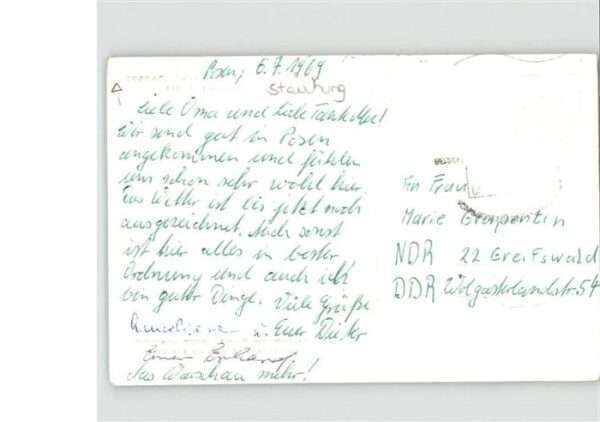 Posen, 6.7.1969
Liebe Oma und liebe Tante
Wir sind gut in Posen
angekommen und fühlen
uns schon sehr wohl hier.
Das Wetter ist bis jetzt noch
ausgezeichnet. Auch sonst
ist hier alles in bester
Ordnung und auch ich
bin guter Dinge. Viele Grüße
u. Euer Dieter
Euer
Aus Warschau mehr!
An Frau
Marie
NDR 22 Greifswald
DDR Wolgasterlandstr. 54